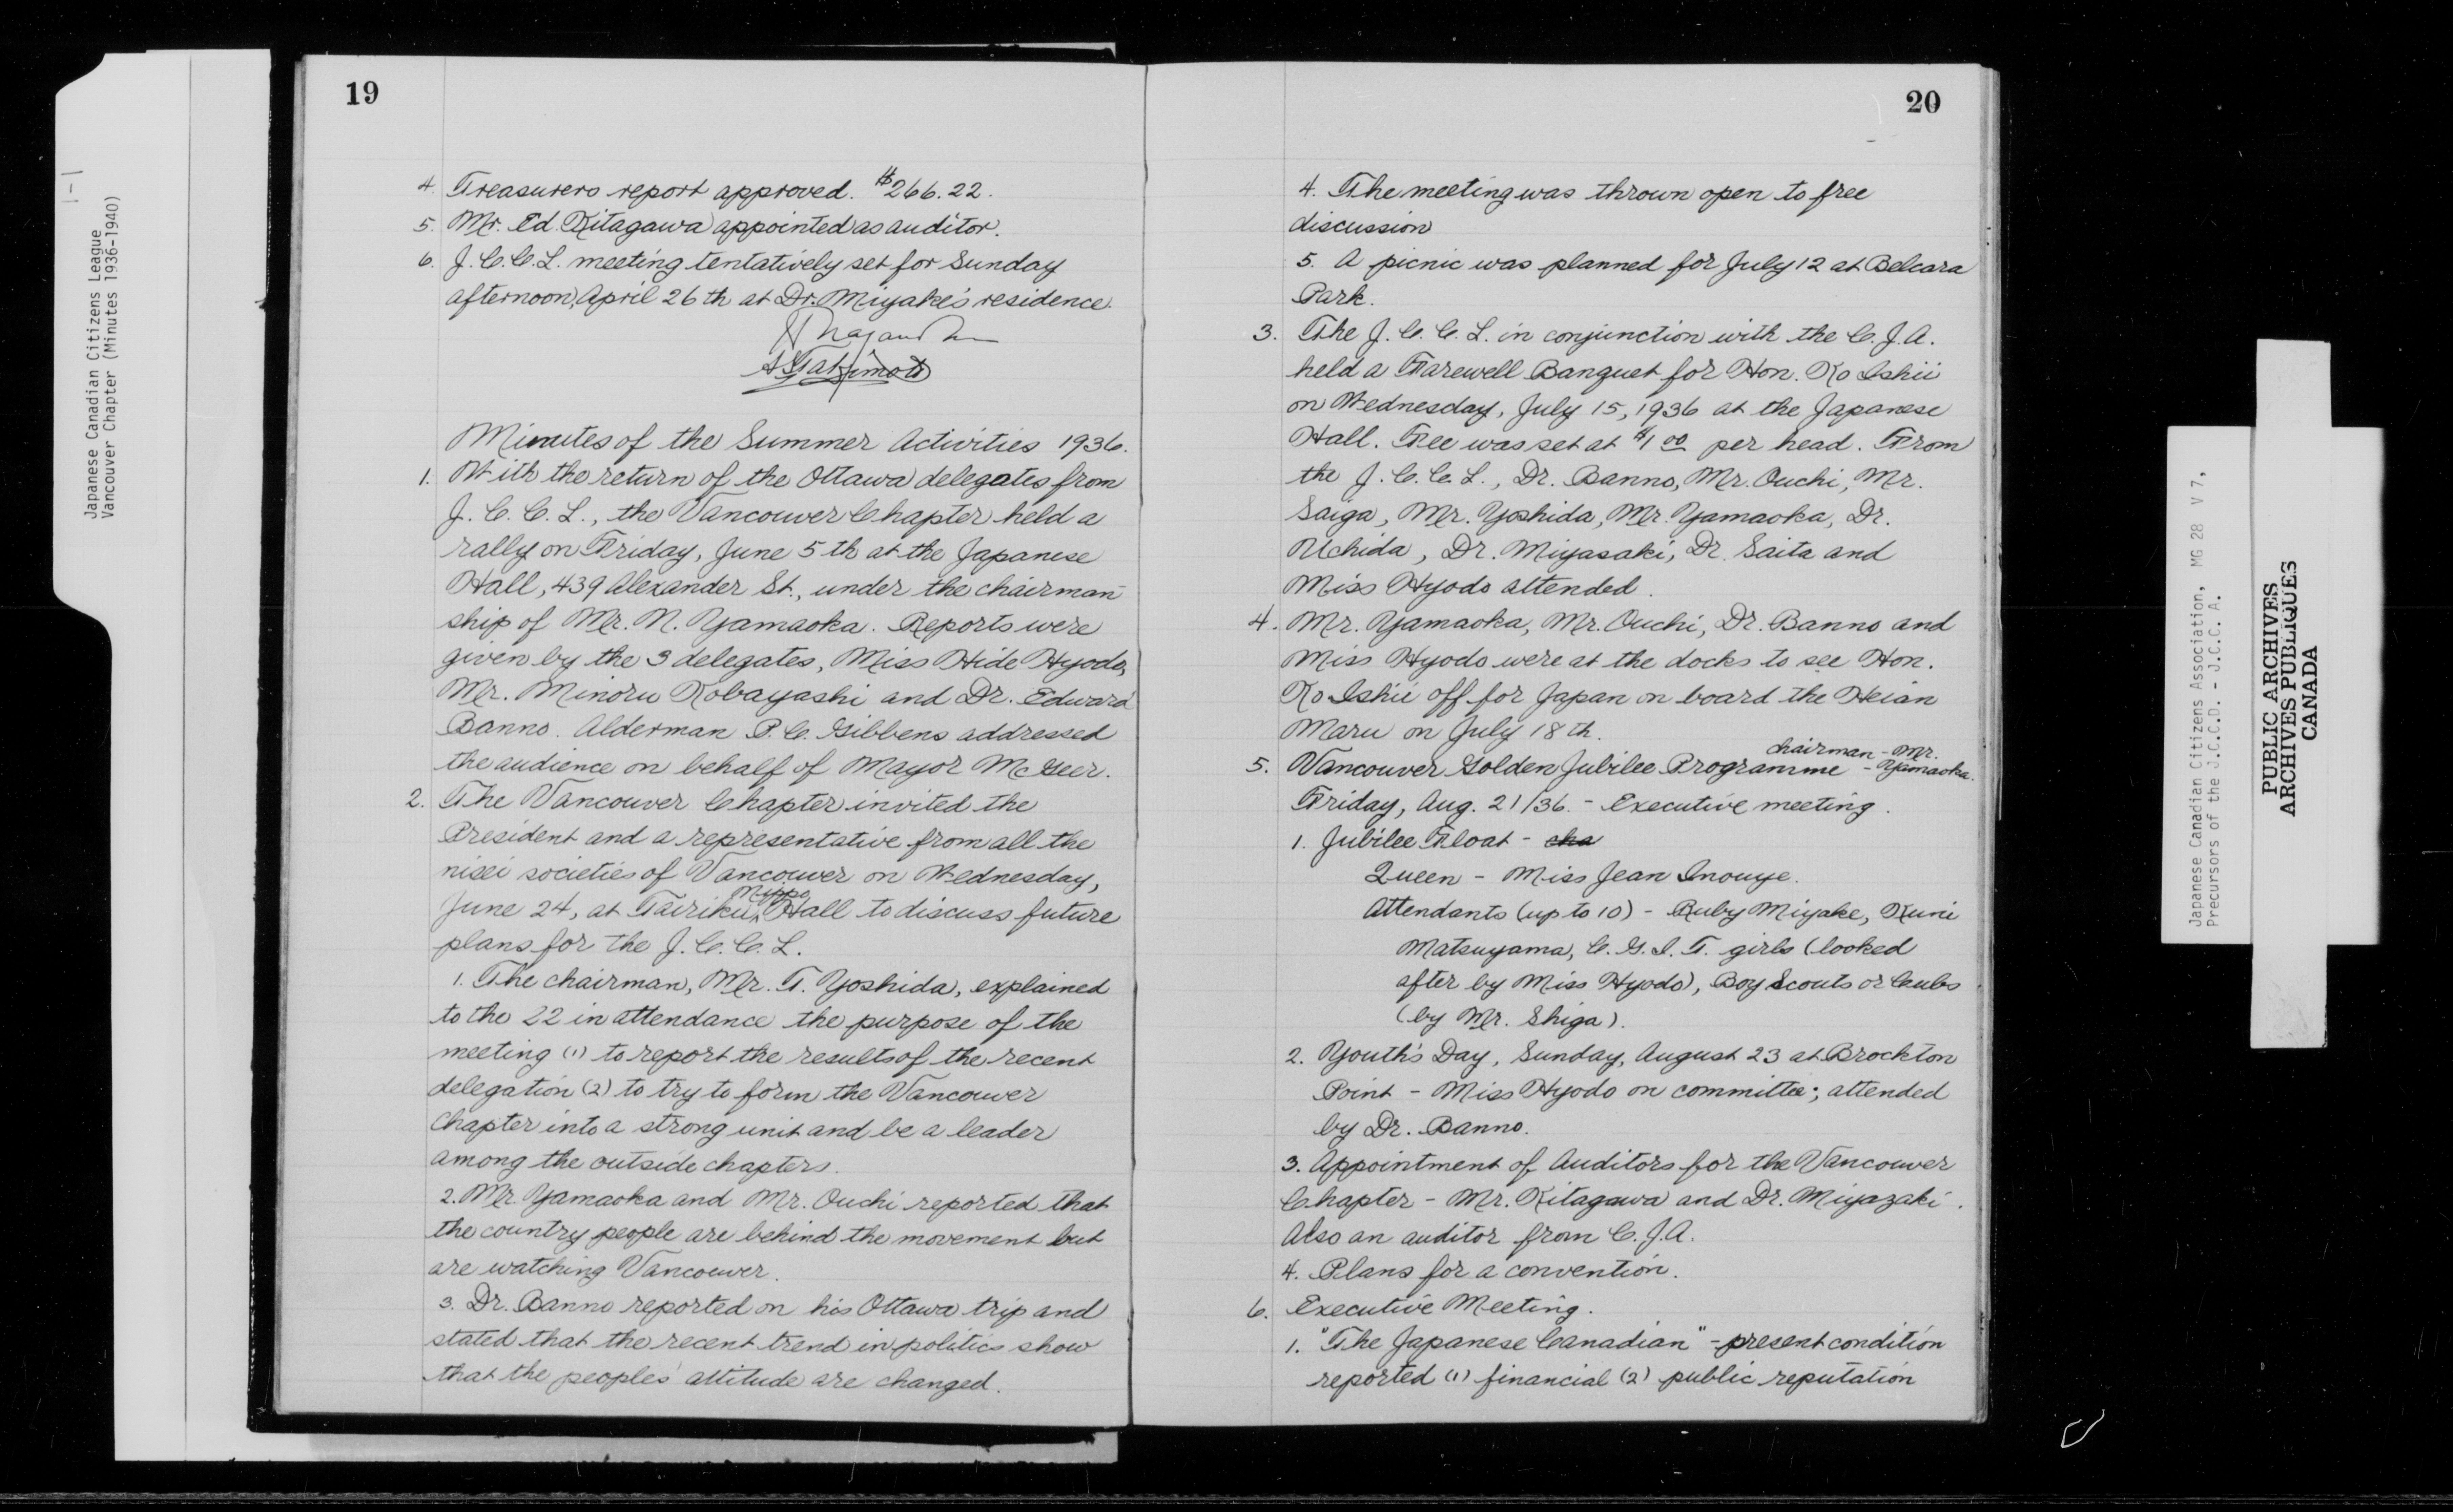 1-1
Japanese Canadian Citizens League
Vancouver Chapter (Minutes 1936-1940)
19
4. Treasurers report approved. $266.22.
5. Mr. Ed. Kitagawa appointed as auditor.
6. J.C.C.L. meeting tentatively set for Sunday
afternoon, April 26th at Dr. Miyake's residence.
Minutes of the Summer Activities 1936.
1. With the return of the Ottawa delegates from
J.C.C.L., the Vancouver Chapter held a
rally on Friday, June 5th at the Japanese
Hall, 439 Alexander St., under the chairman-
ship of Mr. N. Yamaoka. Reports were
given by the 3 delegates, Miss Hide Hyodo,
Mr. Minoru Kobayashi and Dr. Edward
Banno. Alderman P.C. Gibbens addressed
the audience on behalf of Mayor McGeer.
2. The Vancouver Chapter invited the
President and a representative from all the
nisei societies of Vancouver on Wednesday,
June 24, at Tairiku Nippo Hall to discuss future
plans for the J.C.C.L.
1. The chairman, Mr. T. Yoshida, explained
to the 22 in attendance the purpose of the
meeting (1) to report the results of the recent
delegation (2) to try to form the Vancouver
Chapter into a strong unit and be a leader
among the outside chapters.
2. Mr. Yamaoka and Mr. Ouchi reported that
the country people are behind the movement but
are watching Vancouver.
3. Dr. Banno reported on his Ottawa trip and
stated that the recent trend in politics show
that the peoples' attitude are changed.
20
4. The meeting was thrown open to free
discussion
5. A picnic was planned for July 12 at Belcara
Park.
3. The J.C.C.L. in conjunction with the C.J.A.
held a Farewell Banquet for Hon. Ko Ishii
on Wednesday, July 15, 1936 at the Japanese
Hall. Fee was set at $1 00 per head. From
the J.C.C.L., Dr. Banno, Mr. Ouchi, Mr.
Saiga, Mr. Yoshida, Mr. Yamaoka, Dr.
Uchida, Dr. Miyasaki, Dr. Saita and
Miss Hyodo attended.
4. Mr. Yamaoka, Mr. Ouchi, Dr. Banno and
Miss Hyodo were at the docks to see Hon.
Ko Ishii off for Japan on board the Heian
Maru on July 18th.
5. Vancouver Golden Jubilee Programme - chairman - Mr. Yamaoka.
Friday, Aug. 21/36. - Executive meeting.
1. Jubilee Float - cha
Queen - Miss Jean Inouye.
Attendants (up to 10) - Ruby Miyake, Kuni
Matsuyama, C.G.I.T. girls (looked
after by Miss Hyodo), Boy Scouts or Cubs
(by Mr. Shiga).
2. Youth's Day, Sunday, August 23 at Brockton
Point - Miss Hyodo on committee; attended
by Dr. Banno.
3. Appointment of Auditors for the Vancouver
Chapter - Mr. Kitagawa and Dr. Miyazaki.
Also an auditor from C.J.A.
4. Plans for a convention.
6. Executive Meeting.
1. "The Japanese Canadian" - present condition
reported (1) financial (2) public reputation
Japanese Canadian Citizens Association, MG 28 V 7,
Precursors of the J.C.C.D. - J.C.C.A.
PUBLIC ARCHIVES
ARCHIVES PUBLIQUES
CANADA